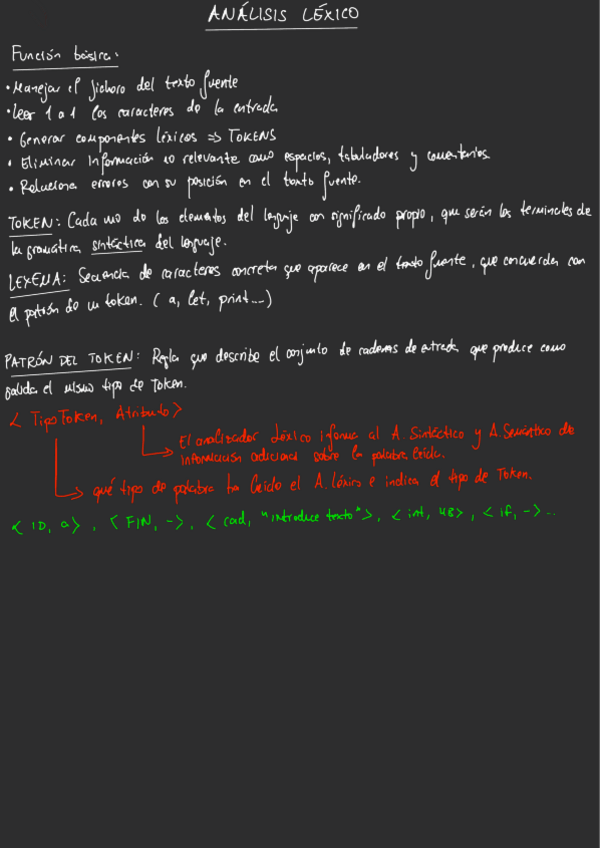 ANÁLISIS LÉXICO
Función básica:
• Manejar el fichero del texto fuente
• Leer 1 a 1 los caracteres de la entrada
• Generar componentes léxicos => TOKENS
• Eliminar información no relevante como espacios, tabuladores y comentarios.
• Relaciona errores con su posición en el texto fuente.
TOKEN: Cada uno de los elementos del lenguaje con significado propio, que serán los terminales de
la gramática sintáctica del lenguaje.
LEXEMA: Secuencia de caracteres concreta que aparece en el texto fuente, que concuerda con
el patrón de un token. ( a, let, print....)
PATRÓN DEL TOKEN: Regla que describe el conjunto de cadenas de entrada que produce como
salida el mismo tipo de Token.
< TipoToken, Atributo>
El analizador Léxico informa al A. Sintáctico y A. Semántico de
información adicional sobre la palabra leída.
qué tipo de palabra ha leído el A. léxico e indica el tipo de Token.
< ID, a> , < FIN, -> , < cad, "introduce texto"> , < int, 48> , < if, -> ...